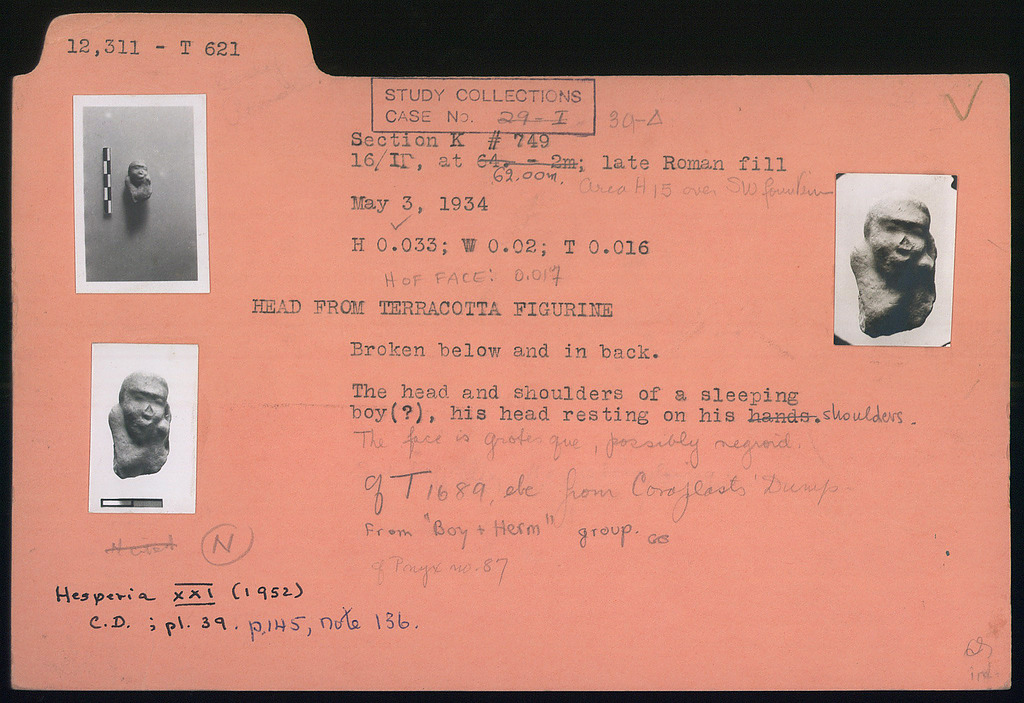 12,311 - T 621
STUDY COLLECTIONS
CASE No. 29-I 39-Δ
Section K # 749
16/ΙΓ, at 64. - 2m; late Roman fill
62.00m. Area H 15 over SW fountain
May 3, 1934
H 0.033; W 0.02; T 0.016
H OF FACE: 0.017
HEAD FROM TERRACOTTA FIGURINE
Broken below and in back.
The head and shoulders of a sleeping
boy(?), his head resting on his hands. shoulders.
The face is grotesque, possibly negroid.
cf T 1689, etc from Coroplasts' Dump
From "Boy + Herm" group.
cf Pnyx no. 87
N
Hesperia XXI (1952)
C.D. ; pl. 39. p.145, note 136.
ind.